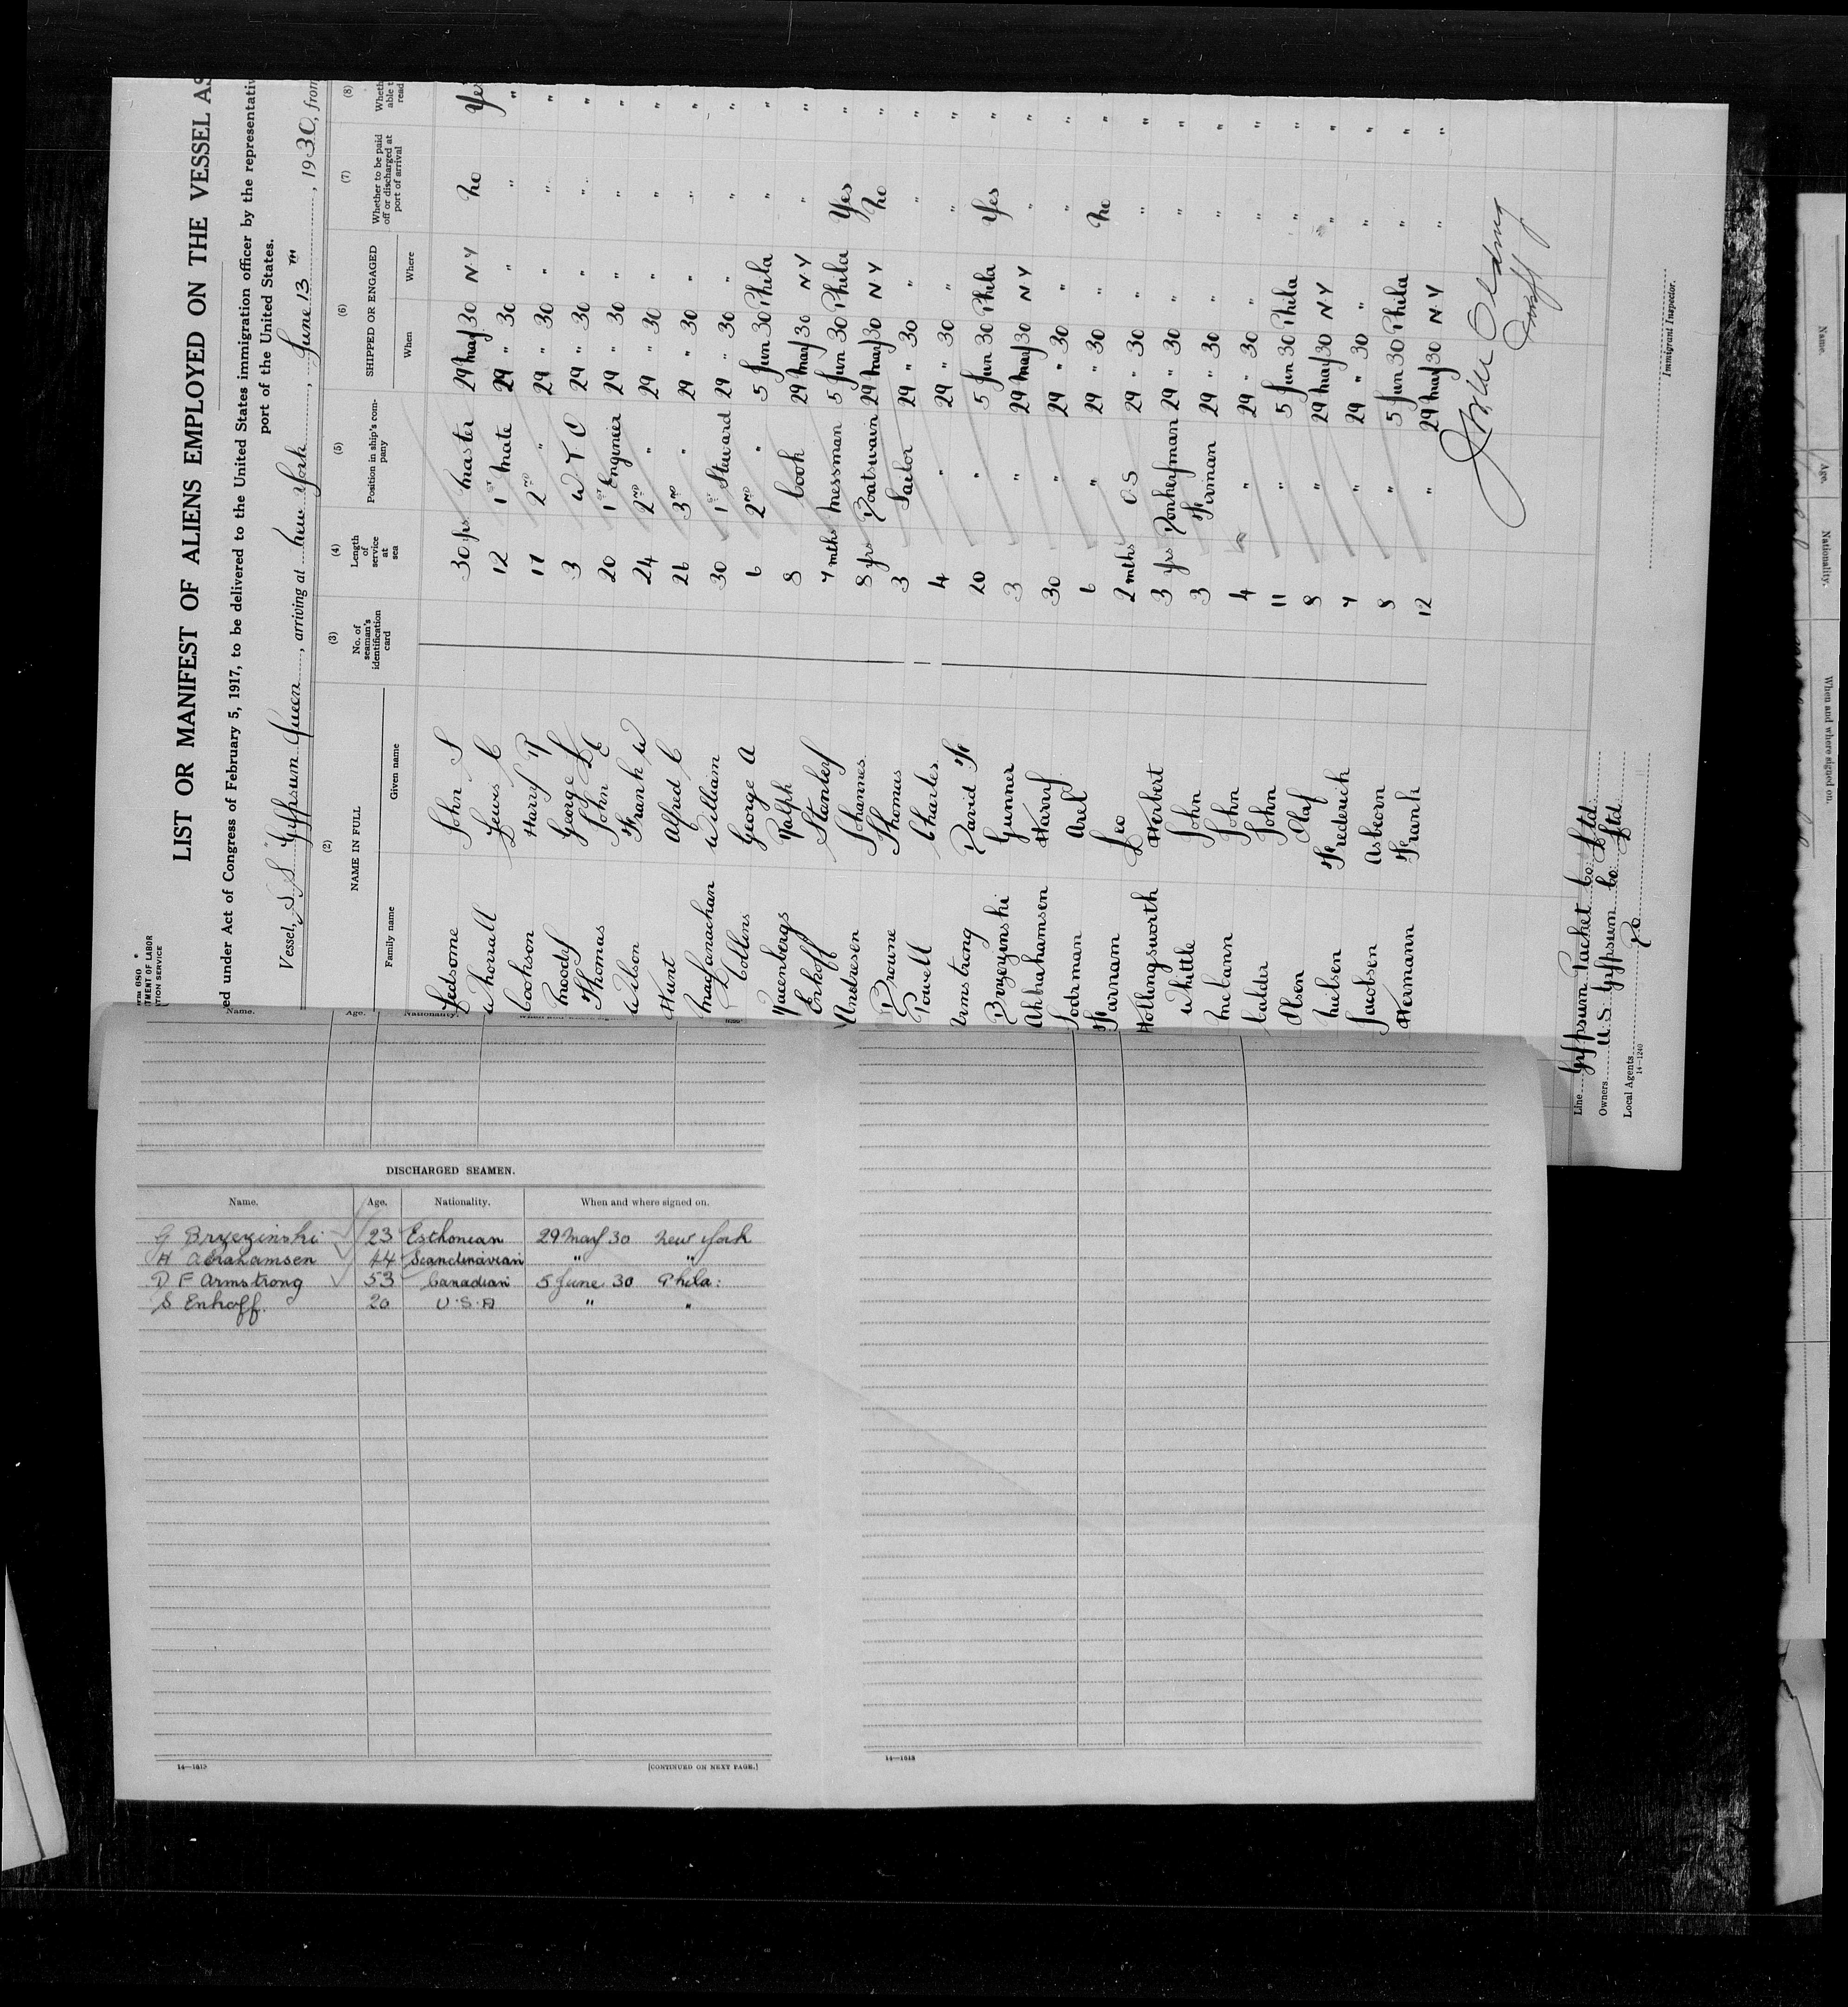 LIST OR MANIFEST OF ALIENS EMPLOYED ON THE VESSEL AS
ed under Act of Congress of February 5, 1917, to be delivered to the United States immigration officer by the representativ
port of the United States.
Vessel, S.S. "Gypsum Queen, arriving at New York, June 13TH, 1930, from
TMENT OF LABOR
TION SERVICE
(2) (3) (4) (5) (6) (7) (8)
NAME IN FULL No. of seaman's identification card Length of service at sea Position in ship's company SHIPPED OR ENGAGED Whether to be paid off or discharged at port of arrival Wheth able t read
Family name Given name When Where
Ledsome John S 30 yrs Master 29 May 30 N.Y No Yes
Whorrall Lewis C 12 1ST Mate 29 " 30 " " "
Cookson Harry P 11 2ND " 29 " 30 " " "
Moody George L 3 W T O 29 " 30 " " "
Thomas John 20 1ST Engineer 29 " 30 " " "
Wilson Frank W 24 2ND " 29 " 30 " " "
Hunt Alfred C 26 3RD " 29 " 30 " " "
MacLanachan William 30 1ST Steward 29 " 30 " " "
Collins George A 6 2ND " 5 Jun 30 Phila " "
Ralph 8 Cook 29 May 30 N Y " "
Enhoff Stanley 7 mths Messman 5 Jun 30 Phila Yes "
Andresen Johannes 8 yrs Boatswain 29 May 30 N Y No "
Browne Thomas 3 Sailor 29 " 30 " " "
Powell Charles 4 " 29 " 30 " " "
Armstrong David F 20 " 5 Jun 30 Phila Yes "
Brzezinski Gunner 3 " 29 May 30 N Y " "
Abrahamsen Harry 30 " 29 " 30 " " "
Sodrman Axel 6 " 29 " 30 " No "
Farnam Leo 2 mths O.S 29 " 30 " " "
Hollingsworth Herbert 3 yrs Donkeyman 29 " 30 " " "
Whittle John 3 Fireman 29 " 30 " " "
McLann John 4 " 29 " 30 " " "
Calder John 11 " 5 Jun 30 Phila " "
Olsen Olaf 8 " 29 May 30 N Y " "
Nielsen Frederich 7 " 29 " 30 " " "
Jacobsen Asbeorn 8 " 5 Jun 30 Phila " "
Hermann Frank 12 " 29 May 30 N.Y " "
Immigrant Inspector.
Line Gypsum Packet Co: Ltd.
Owners U.S. Gypsum Co: Ltd
Local Agents do
14—1240
Name. Age. Nationality.
DISCHARGED SEAMEN.
Name. Age. Nationality. When and where signed on.
G Brzezinski 23 Esthonian 29 May 30 New York
H Abrahamsen 44 Scandinavian " "
D F Armstrong 53 Canadian 5 June 30 Phila:
S Enhoff. 20 U.S.A " "
14—1613 [CONTINUED ON NEXT PAGE.]
14—1613
Name. Age. Nationality. When and where signed on.